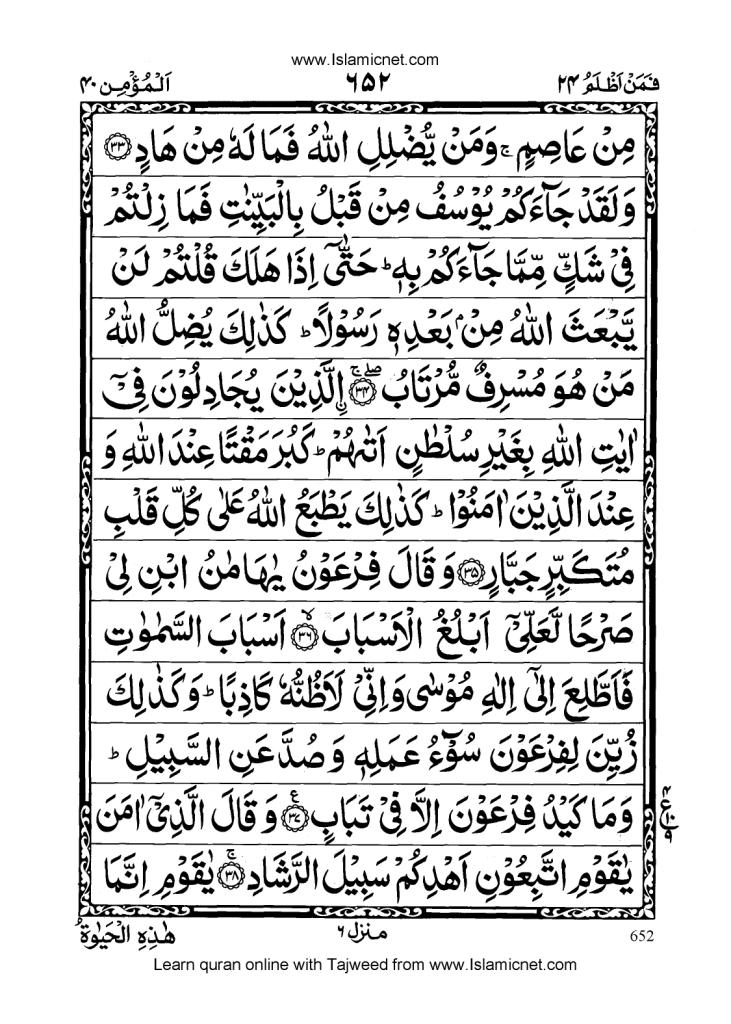 www.Islamicnet.com
اَلْمُؤْمِن ۴۰ ۶۵۲ فَمَنْ اَظْلَمُ ۲۴
مِنْ عَاصِمٍ ۚ وَمَنْ يُّضْلِلِ اللّٰهُ فَمَا لَهٗ مِنْ هَادٍ ﴿۳۳﴾
وَلَقَدْ جَآءَكُمْ يُوْسُفُ مِنْ قَبْلُ بِالْبَيِّنٰتِ فَمَا زِلْتُمْ
فِيْ شَكٍّ مِّمَّا جَآءَكُمْ بِهٖ ؕ حَتّٰٓى اِذَا هَلَكَ قُلْتُمْ لَنْ
يَّبْعَثَ اللّٰهُ مِنْۢ بَعْدِهٖ رَسُوْلًا ؕ كَذٰلِكَ يُضِلُّ اللّٰهُ
مَنْ هُوَ مُسْرِفٌ مُّرْتَابُ ﴿۳۴﴾ ۚۖ اِۨلَّذِيْنَ يُجَادِلُوْنَ فِيْٓ
اٰيٰتِ اللّٰهِ بِغَيْرِ سُلْطٰنٍ اَتٰىهُمْ ؕ كَبُرَ مَقْتًا عِنْدَ اللّٰهِ وَ
عِنْدَ الَّذِيْنَ اٰمَنُوْا ؕ كَذٰلِكَ يَطْبَعُ اللّٰهُ عَلٰى كُلِّ قَلْبِ
مُتَكَبِّرٍ جَبَّارٍ ﴿۳۵﴾ وَ قَالَ فِرْعَوْنُ يٰهَامٰنُ ابْنِ لِيْ
صَرْحًا لَّعَلِّيْٓ اَبْلُغُ الْاَسْبَابَ ﴿۳۶﴾ ۙ اَسْبَابَ السَّمٰوٰتِ
فَاَطَّلِعَ اِلٰٓى اِلٰهِ مُوْسٰى وَاِنِّيْ لَاَظُنُّهٗ كَاذِبًا ؕ وَكَذٰلِكَ
زُيِّنَ لِفِرْعَوْنَ سُوْٓءُ عَمَلِهٖ وَ صُدَّ عَنِ السَّبِيْلِ ؕ
وَمَا كَيْدُ فِرْعَوْنَ اِلَّا فِيْ تَبَابٍ ﴿۳۷﴾ ع وَ قَالَ الَّذِيْٓ اٰمَنَ
يٰقَوْمِ اتَّبِعُوْنِ اَهْدِكُمْ سَبِيْلَ الرَّشَادِ ﴿۳۸﴾ ۚ يٰقَوْمِ اِنَّمَا
۴ ع ۱۰ ۹
هٰذِهِ الْحَيٰوةُ منزل ۶ 652
Learn quran online with Tajweed from www.Islamicnet.com